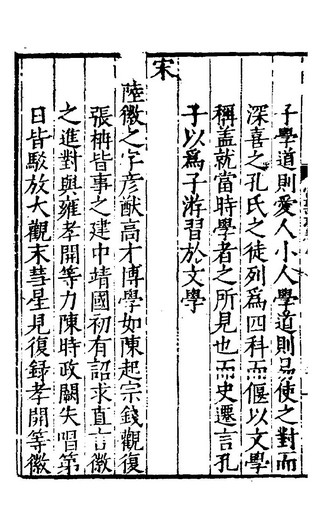 子學道則愛人小人學道則易使之對而
深喜之孔氏之徒列爲四科而偃以文學
稱盖就當時學者之所見也而史遷言孔
子以爲子游習於文學
宋
陸徽之字彦猷高才博學如陳起宗錢觀復
張柟皆事之建中靖國初有詔求直言徽
之進對與雍孝開等力陳時政闕失唱第
日皆駁放大觀末彗星見復録孝開等徽